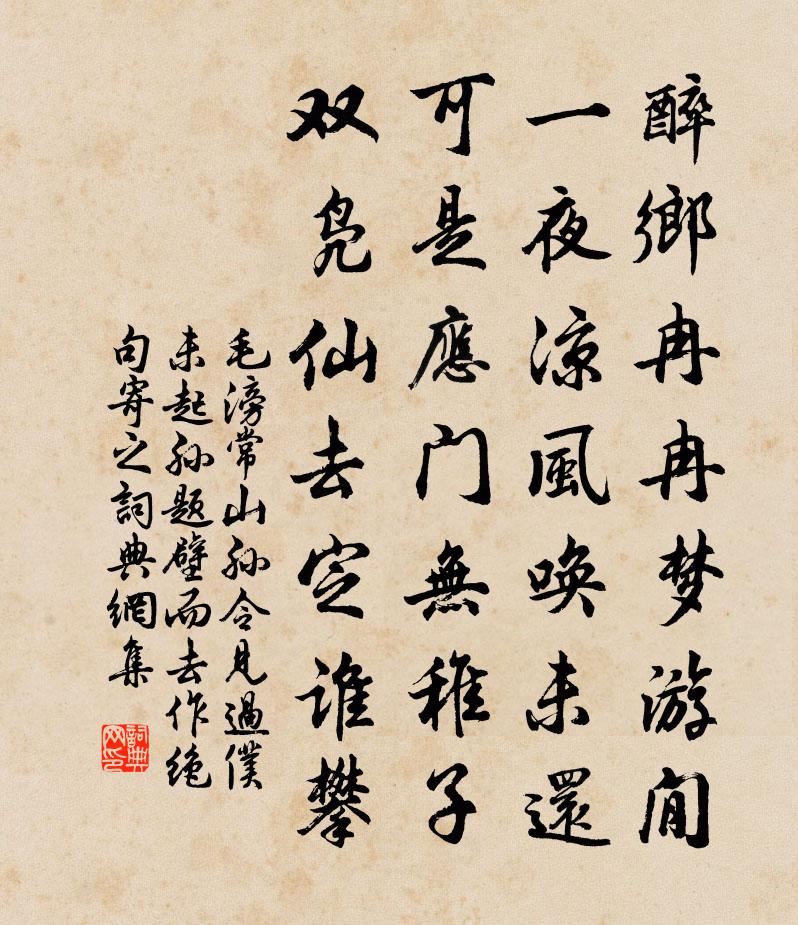 醉鄉冉冉梦游閒
一夜凉風唤未還
可是應門無稚子
双凫仙去定谁攀
毛滂常山孙令見過僕
未起孙题壁而去作絶
句寄之詞典網集
詞典网印